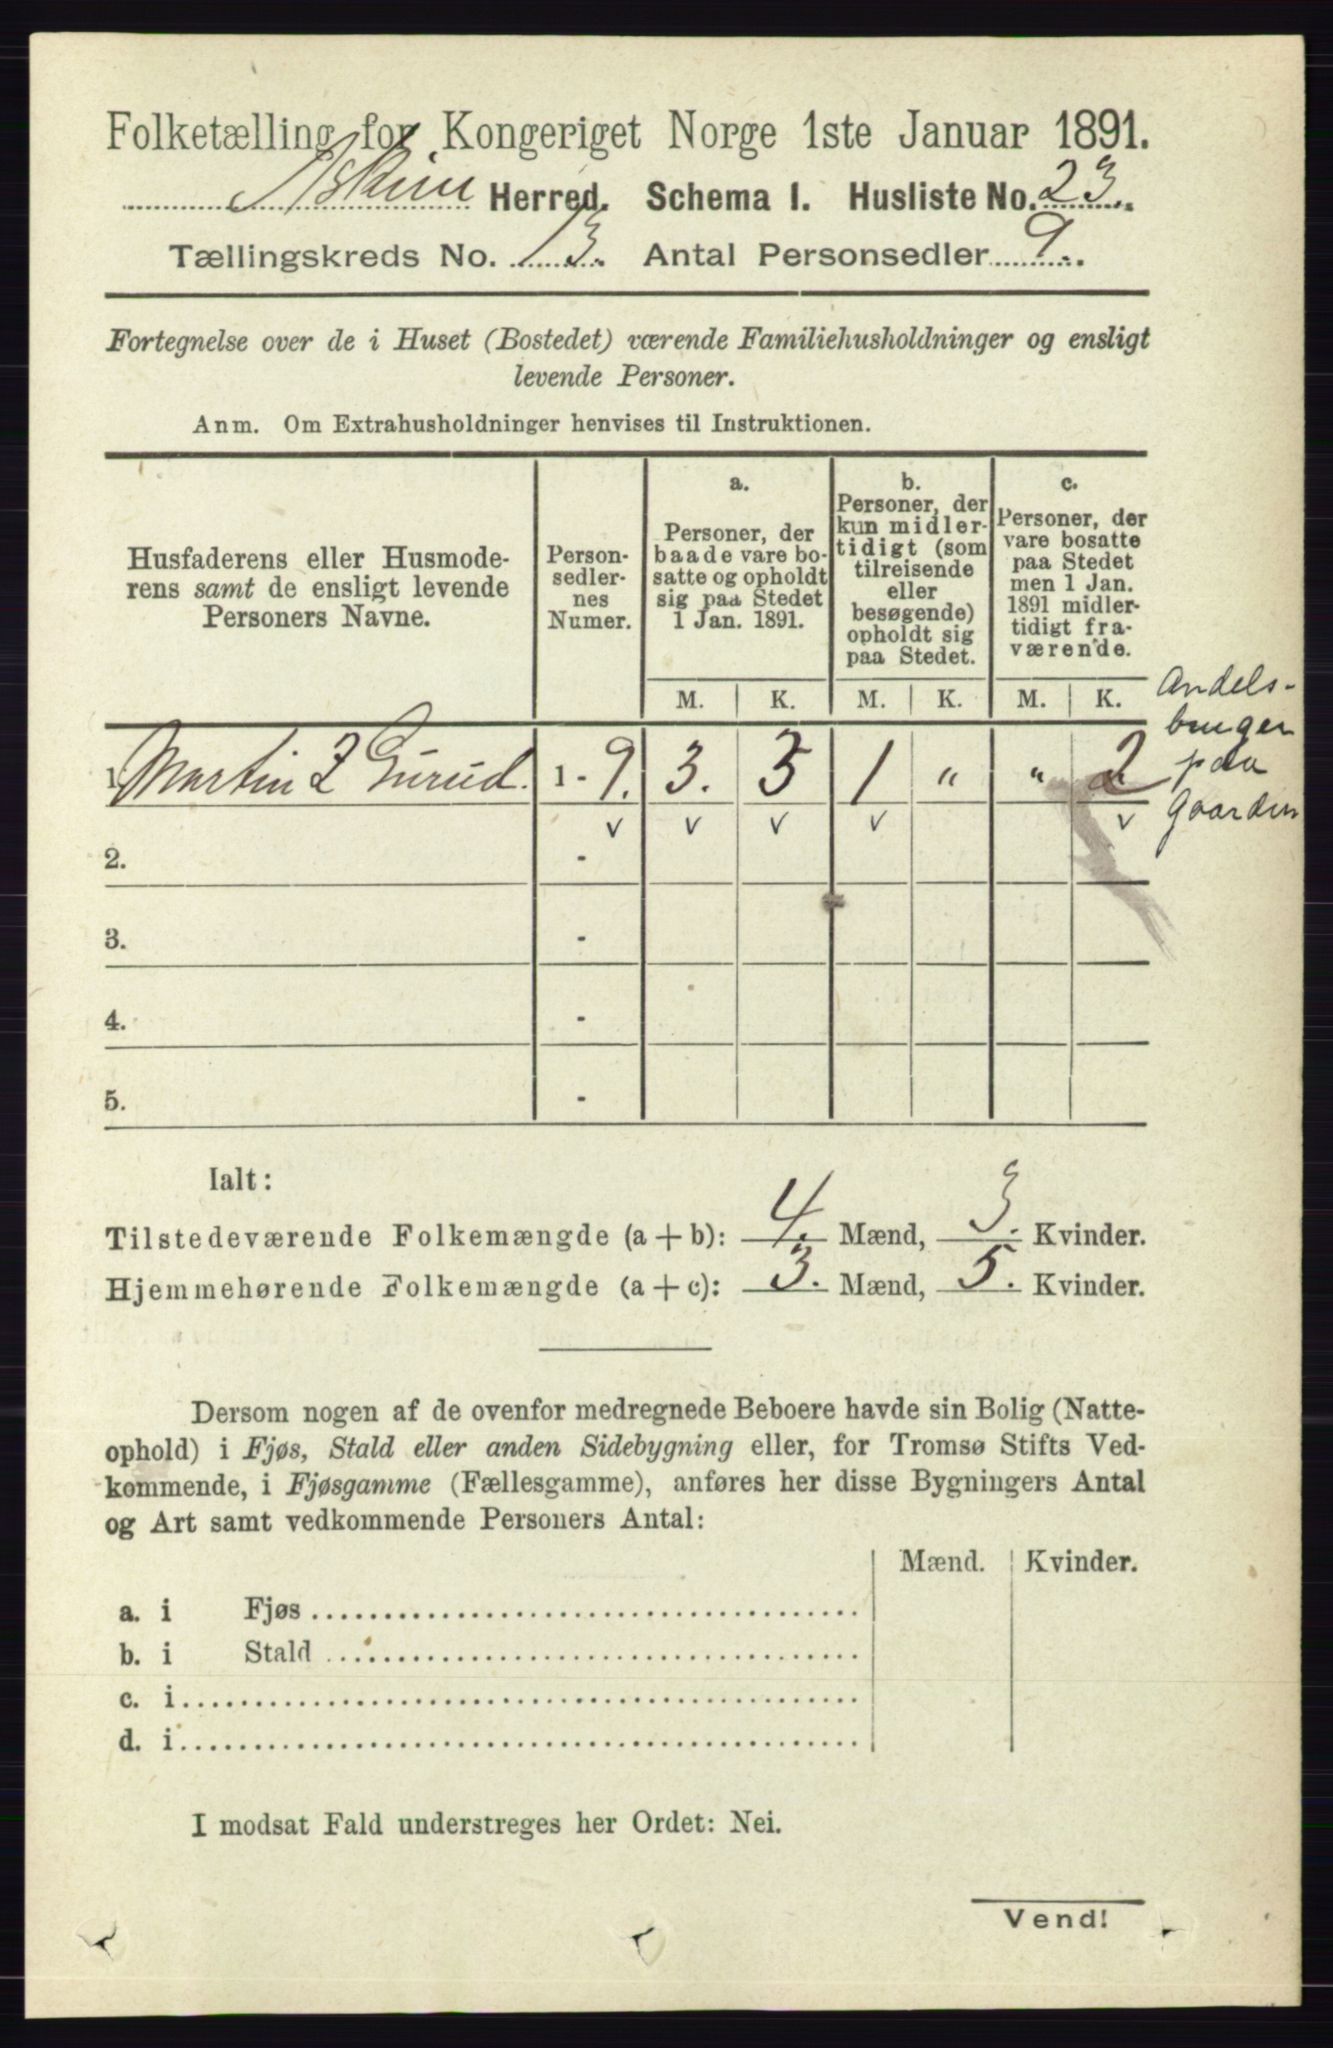 Folketælling for Kongeriget Norge 1ste Januar 1891.
Askim Herred. Schema I. Husliste No. 23.
Tællingskreds No. 13. Antal Personsedler 9.
Fortegnelse over de i Huset (Bostedet) værende Familiehusholdninger og ensligt
levende Personer.
Anm. Om Extrahusholdninger henvises til Instruktionen.
Husfaderens eller Husmode-
rens samt de ensligt levende
Personers Navne.
Person-
sedler-
nes
Numer.
a.
Personer, der
baade vare bo-
satte og opholdt
sig paa Stedet
1 Jan. 1891.
b.
Personer, der
kun midler-
tidigt (som
tilreisende
eller
besøgende)
opholdt sig
paa Stedet.
c.
Personer, der
vare bosatte
paa Stedet
men 1 Jan.
1891 midler-
tidigt fra-
værende.
M. K. M. K. M. K.
Andels-
bruger
paa
Gaarden
1. Martin Gurud. 1 - 9. 3. 3 1 " " 2
v v v v v
2. -
3. -
4. -
5. -
Ialt:
Tilstedeværende Folkemængde (a + b): 4. Mænd, 3. Kvinder.
Hjemmehørende Folkemængde (a + c): 3. Mænd, 5. Kvinder.
Dersom nogen af de ovenfor medregnede Beboere havde sin Bolig (Natte-
ophold) i Fjøs, Stald eller anden Sidebygning eller, for Tromsø Stifts Ved-
kommende, i Fjøsgamme (Fællesgamme), anføres her disse Bygningers Antal
og Art samt vedkommende Personers Antal:
Mænd. Kvinder.
a. i Fjøs
b. i Stald
c. i
d. i
I modsat Fald understreges her Ordet: Nei.
Vend!